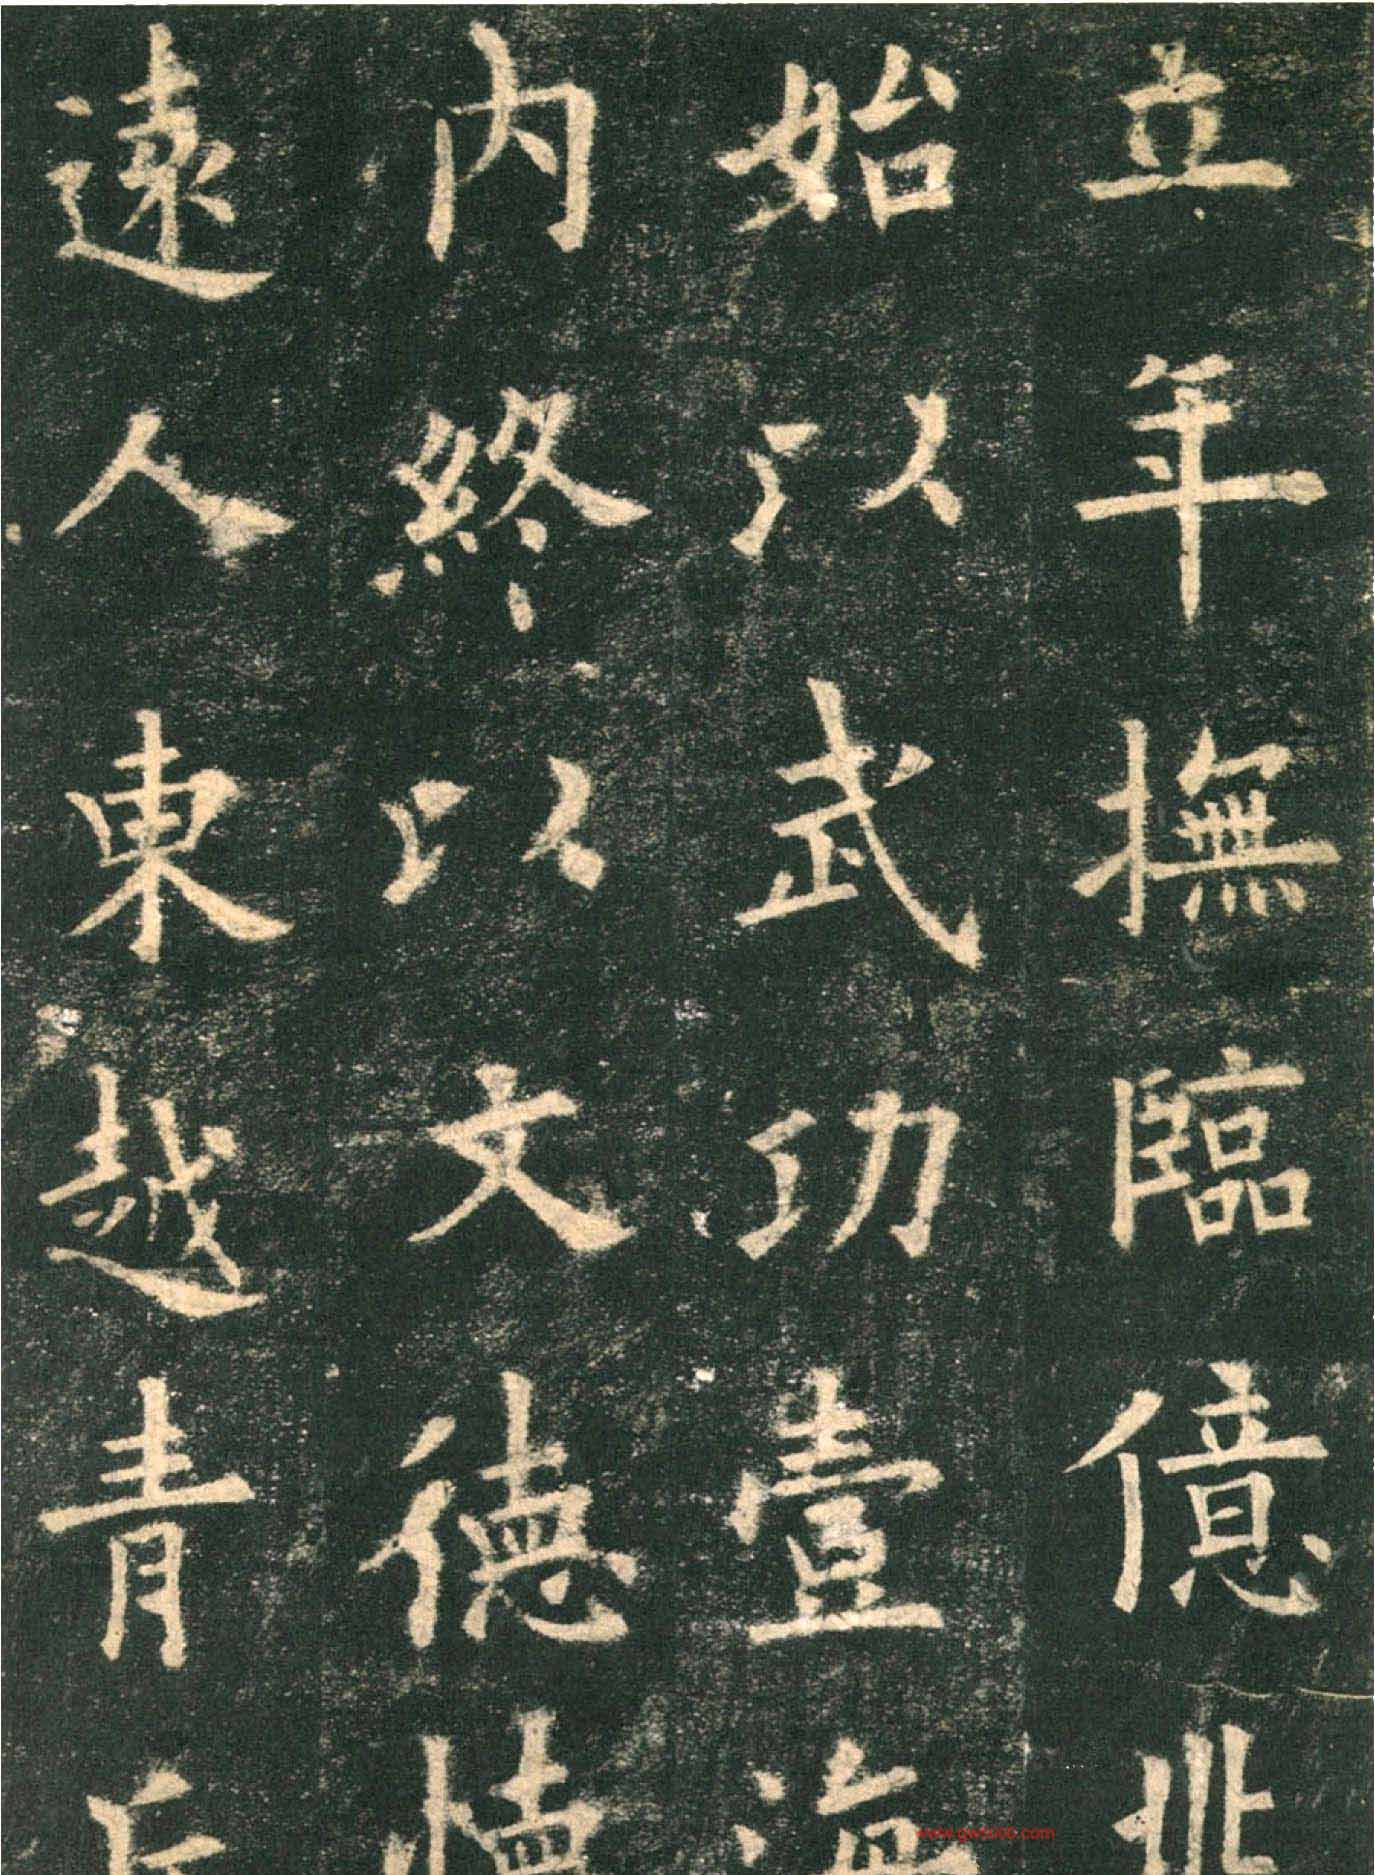 立年撫臨億兆
始以武功壹海
内終以文德懷
遠人東越青丘
www.gw5000.com